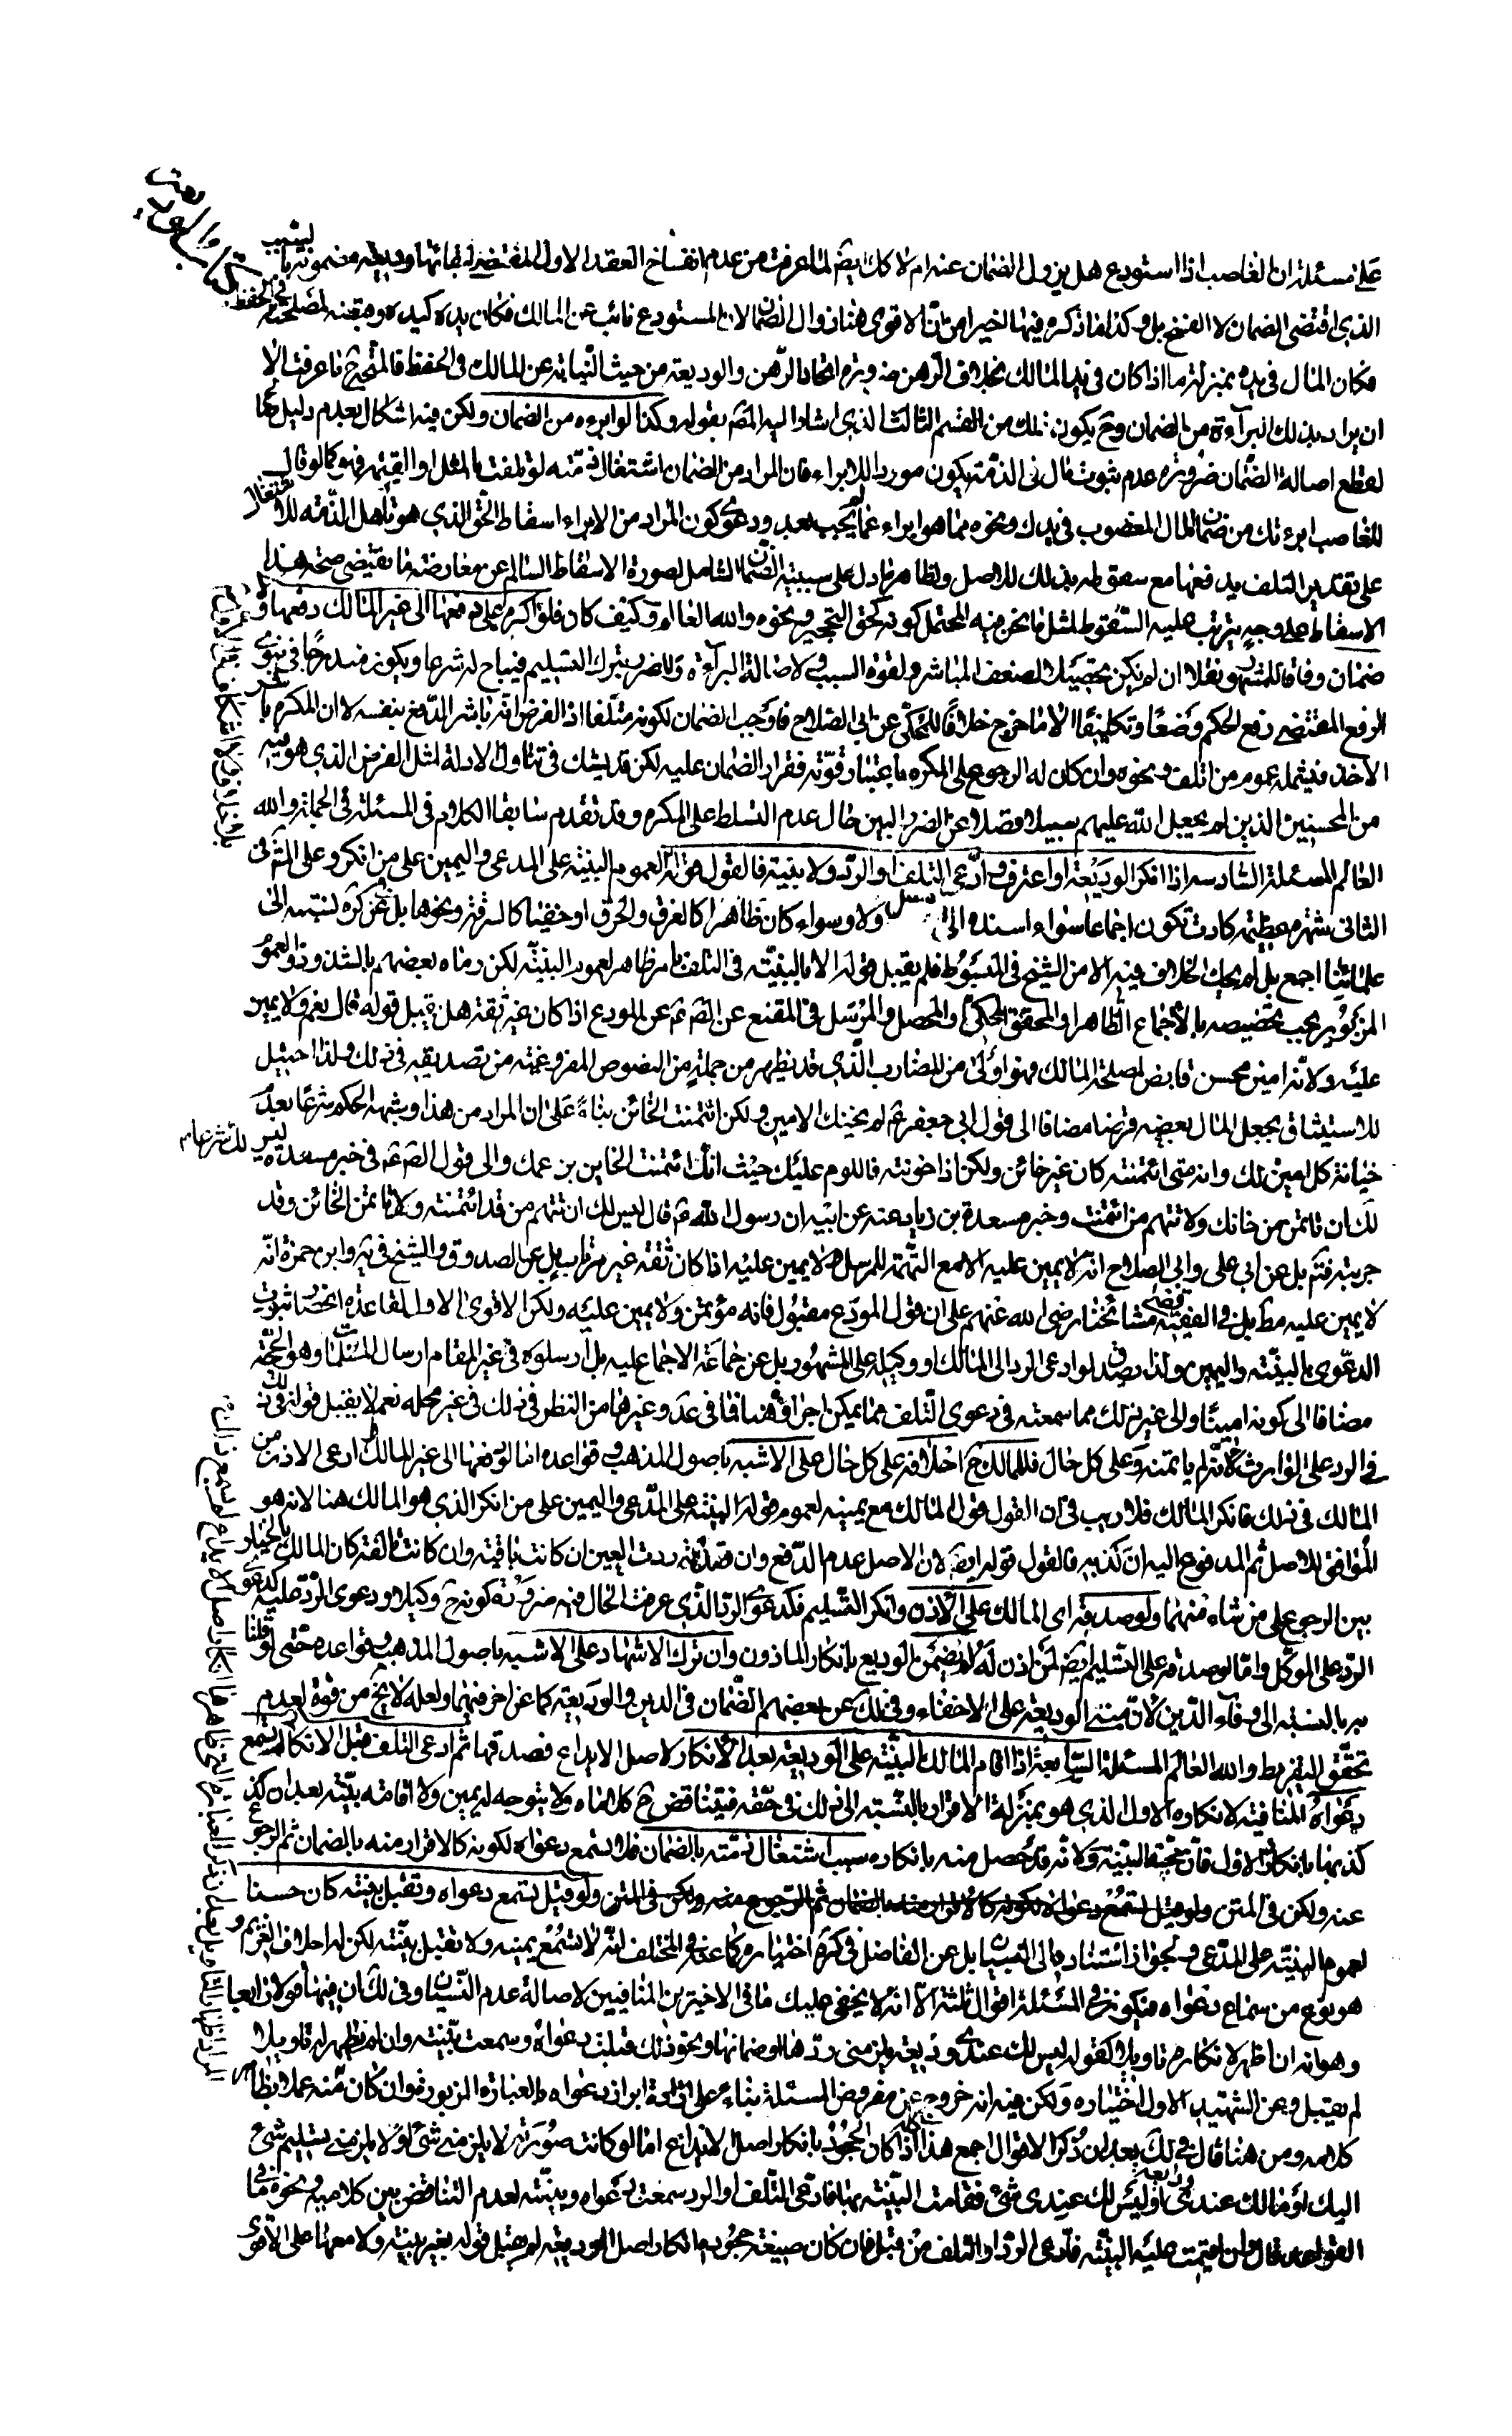 على مسئلة ان الغاصب اذا استودع هل يزول الضمان عنه ام لا كك ايضً لما عرفت من عدم انفساخ العقد الاول المقتضى لبقائها وديعة مضمونة بالسبب
الذى اقتضى الضمان لا الفسخ بل وكذا ما ذكره فيها اخيرا من ان الاقوى هنا زوال الضمان لان المستودع نائب عن المالك فكان يده كيده وقبضه لمصلحته فى الحفظ
فكان المال فى يده بمنزلة ما اذا كان فى يد المالك بخلاف الرهن ضرورة اتحاد الرهن والوديعة من حيث النيابة عن المالك فى الحفظ فالمتجه ح ما عرفت الا
ان يراد بذلك البرآءة من الضمان وح يكون ذلك من القسم الثالث الذى اشار اليه المص بقوله وكذا لو ابرءه من الضمان ولكن فيه اشكال بعدم دليل
لقطع اصالة الضمان ضرورة عدم ثبوت مال فى الذمة يكون موردا للابراء فان المراد من الضمان اشتغال ذمته لو تلفت بالمثل او القيمة فهو كما لو قال
للغاصب ابرءتك من ضمان المال المغصوب فى يدك ونحوه مما هو ابراء عما لم يجب بعد ودعوى كون المراد من الابراء اسقاط الحق الذى هو تأهل الذمة للاشتغال
على تقدير التلف يدفعها مع سقوطه بذلك للاصل ولظاهر ما دل على سببية الضمان الشامل لصورة الاسقاط السالم عن معارضة ما يقتضى صحة هذا
الاسقاط على وجه يترتب عليه السقوط لمثل ما نحن فيه المحتمل كونه كحق التحجير ونحوه والله العالم وكيف كان فلو اكره على دفعها الى غير المالك دفعها ولا
ضمان وفاقا للمشهور نقلا ان لم يكن تحصيلا لضعف المباشر ولقوة السبب ولاصالة البرآءة وللضرر بترك التسليم فيباح له شرعا ويكون مندرجا فى نبوى
الرفع المقتضى رفع الحكم وضعًا وتكليفًا الا ما خرج خلافًا للمحكى عن ابى الصلاح فاوجب الضمان لكونه متلفا اذ الفرض انه باشر الدفع بنفسه لا ان المكره باشر
الاخذ فيشمله عموم من اتلف ونحوه وان كان له الرجوع على المكره باعتبار قوته فقرار الضمان عليه لكن قد يشك فى تناول الادلة لمثل الفرض الذى هو فيه
من المحسنين الذين لم يجعل الله عليهم سبيلا فضلا عن الضرر البين حال عدم التسلط على المكره وقد تقدم سابقا الكلام فى المسئلة فى الجملة والله
العالم المسئلة السادسة اذا انكر الوديعة او اعترف وادعى التلف او الرد ولا بينة فالقول قوله لعموم البينة على المدعى واليمين على من انكر وعلى المشهور فى
الثانى شهرة عظيمة كادت تكون اجماعا سواء اسنده الى ولا وسواء كان ظاهرا كالغرق والحرق او خفيا كالسرقة ونحوها بل عن كره نسبته الى
علمائنا اجمع بل لم يحك الخلاف فيه الا من الشيخ فى المبسوط فلم يقبل قوله الا بالبينة فى التلف بامر ظاهر لعموم البينة لكن رماه بعضهم بالشذوذ والعموم
المزبور يجب تخصيصه بالاجماع الظاهر او المحقق المحكى والمحصل والمرسل فى المقنع عن الص ع عن المودع اذا كان غير ثقة هل يقبل قوله قال نعم ولا يمين
عليه ولانه امين محسن قابض لمصلحة المالك فهو اولى من المضارب الذى قد يظهر من جملة من النصوص المفروغية من تصديقه فى ذلك ولذا احتيل
للاستيثاق بجعل المال بعضه قرضا مضافا الى قول ابى جعفر ع لم يخنك الامين ولكن ائتمنت الخائن بناء على ان المراد من هذا وشبهه الحكم شرعًا بعدم
خيانة كل امين لك وانه متى ائتمنته كان غير خائن ولكن اذا خونته فاللوم عليك حيث انك ائتمنت الخاين بزعمك والى قول الص ع فى خبر مسعدة ليس
لك ان تأتمن من خانك ولا تتهم من ائتمنت وخبر مسعدة بن زياد عنه عن ابيه ان رسول الله ص قال ليس لك ان تتهم من قد ائتمنته ولا تأتمن الخائن وقد
جربته فتم بل عن ابى على وابى الصلاح انه لا يمين عليه الا مع التهمة للمرسل لا يمين عليه اذا كان ثقة غير مرتاب بل عن الصدوق والشيخ فى يه وابن حمزة انه
لا يمين عليه مط بل فى الفقيه مضى مشائخنا رضى الله عنهم على ان قول المودع مقبول فانه مؤتمن ولا يمين عليه ولكن الاقوى الاول لقاعدة انحصار ثبوت
الدعوى بالبينة واليمين ولذا يصدق لو ادعى الرد الى المالك او وكيله على المشهور بل عن جماعة الاجماع عليه بل ارسلوه فى غير المقام ارسال المسلمات وهو الحجة
مضافا الى كونه امينًا والى غير ذلك مما سمعته فى دعوى التلف مما يمكن اجراؤه هنا فما فى عد وغيرها من النظر فى ذلك فى غير محله نعم لا يقبل قوله فى ذلك
فى الرد على الوارث لانه لم ياتمنه وعلى كل حال فللمالك ح احلافه على كل حال على الاشبه باصول المذهب وقواعده اما لو دفعها الى غير المالك وادعى الاذن من
المالك فى ذلك فانكر المالك فلا ريب فى ان القول قول المالك مع يمينه لعموم قوله البينة على المدعى واليمين على من انكر الذى هو المالك هنا لانه هو
الموافق للاصل ثم المدفوع اليه ان كذبه فالقول قوله ايضً لان الاصل عدم الدفع وان صدقه ردت العين ان كانت باقية وان كانت تالفة كان المالك بالخيار
بين الرجوع على من شاء منهما ولو صدقه اى المالك على الاذن وانكر التسليم فكدعوى الرد الذى عرفت الحال فيه ضرورة كونه ح وكيلا ودعوى الرد عليه كدعوى
الرد على الموكل واما لو صدقه على التسليم ايضً لمن اذن له لم يضمن الودعى بانكار الماذون وان ترك الاشهاد على الاشبه باصول المذهب وقواعده حتى لو قلنا
به بالنسبة الى وفآء الدين لان مبنى الوديعة على الاخفاء وفى ذلك عن بعضهم الضمان فى الدين والوديعة كما عن اخر فيهما ولعله لا يخ من قوة لعدم
تحقق التفريط والله العالم المسئلة السابعة اذا اقام المالك البينة على الوديعة بعد الانكار لاصل الايداع فصدقها ثم ادعى التلف قبل الانكار لم تسمع
دعواه المنافية لانكاره الاول الذى هو بمنزلة الاقرار بالنسبة الى ذلك فى حقه فيتناقض ح كلاماه ولا يتوجه له يمين ولا اقامة بينة بعد ان كذ
كذبها بانكاره الاول فان حجية البينة ولانه قد حصل منه بانكاره سبب اشتغال ذمته بالضمان فلا تسمع دعواه لكونه كالاقرار منه بالضمان ثم الرجوع
عنه ولكن فى المتن ولو قيل تسمع دعواه لكونه كالاقرار منه بالضمان ثم الرجوع عنه ولكن فى المتن ولو قيل تسمع دعواه وتقبل بينته كان حسنا
لعموم البينة على المدعى ولجواز استناده الى النسيان بل عن الفاضل فى كره اختياره كما عنه فى المختلف انه لا تسمع يمينه ولا تقبل بينته لكن له احلاف الغريم و
هو نوع من سماع دعواه فيكون فى المسئلة اقوال ثلثة الا انه لا يخفى عليك ما فى الاخيرين المنافيين لاصالة عدم النسيان وفى لك ان فيها قولا رابعا
وهو انه ان اظهر لانكاره تاويلا كقوله ليس لك عندى وديعة يلزمنى ردها او ضمانها ونحو ذلك قبلت دعواه وسمعت بينته وان لم يظهر له تاويلا
لم يقبل وعن الشهيد الاول اختياره ولكن فيه انه خروج عن مفروض المسئلة بناء على ارادة ابراز دعواه بالعبارة المزبورة وان كان منه عملا بظاهر
كلامه ومن هنا قال فى لك بعد ان ذكر الاقوال اجمع هذا كله اذا كان الجحود بانكار اصل الايداع اما لو كانت صورته لا يلزمنى شئ او لا يلزمنى تسليم شئ
اليك او مالك عندى وديعة او ليس لك عندى شئ فقامت البينة بها فادعى التلف او الرد سمعت دعواه وبينته لعدم التناقض بين كلاميه ونحوه ما فى
القواعد قال وان اقيمت عليه البينة فادعى الرد او التلف من قبل فان كان صيغة جحوده انكار اصل الوديعة لم يقبل قوله بغير بينة ولا معها على الاقوى